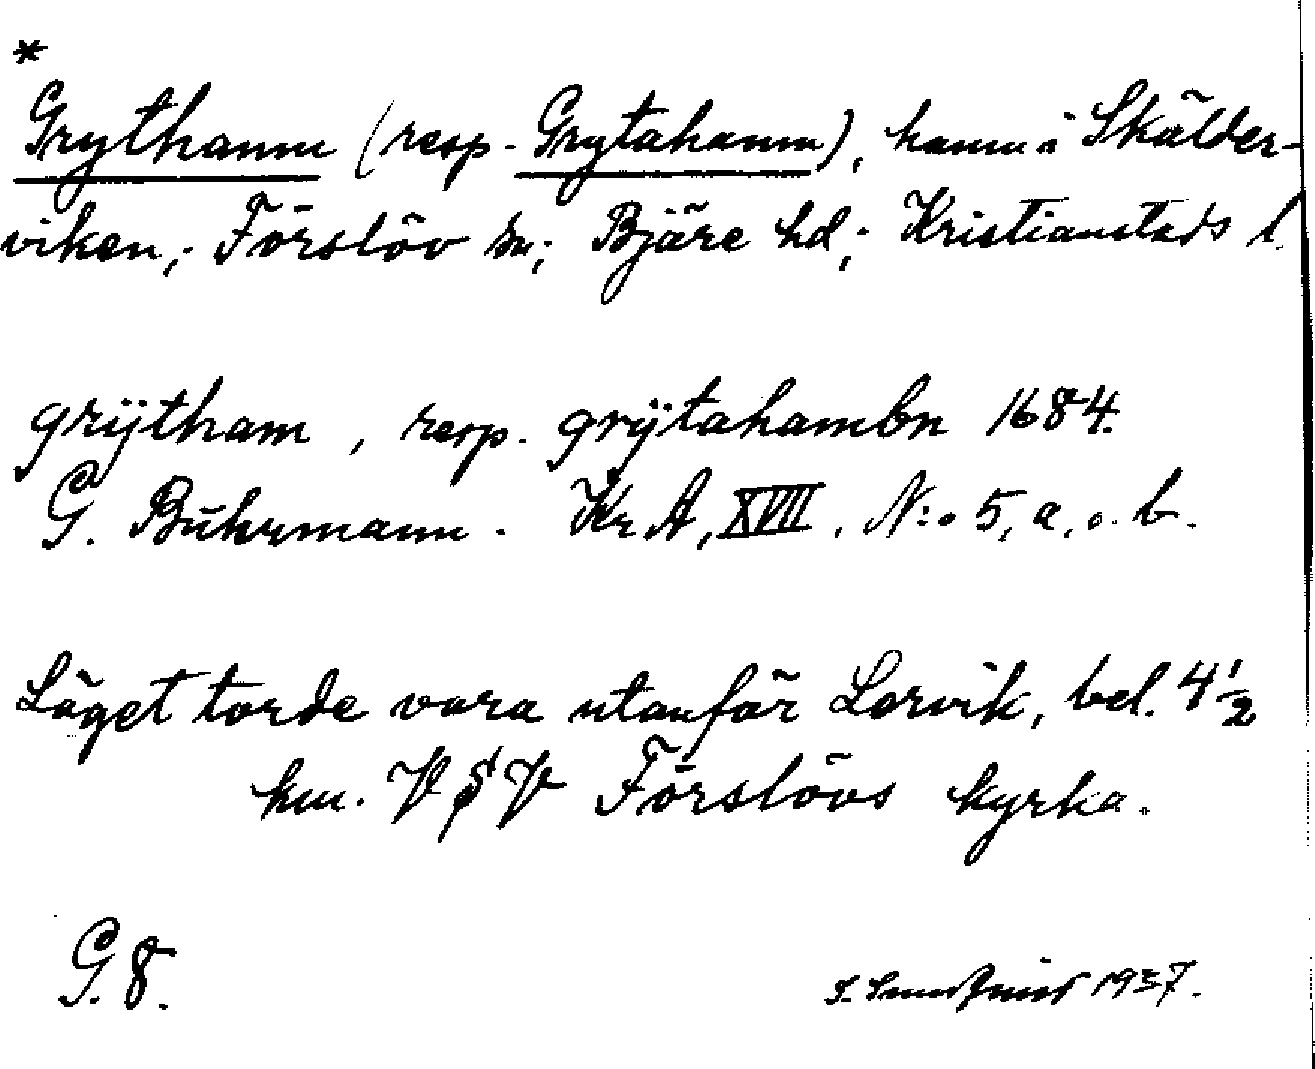 *
Grythamn (resp. Grytahamn), hamn i Skälder-
viken,; Förslöv sn; Bjäre hd; Kristianstads l.
grÿtham, resp. grÿtahambn 1684.
G. Buhrmann. Kr A, XVII. N:o 5, a, o. b.
Läget torde vara utanför Lervik, bel. 4 1/2
km. V S V Förslövs kyrka.
G. 8.
1937.